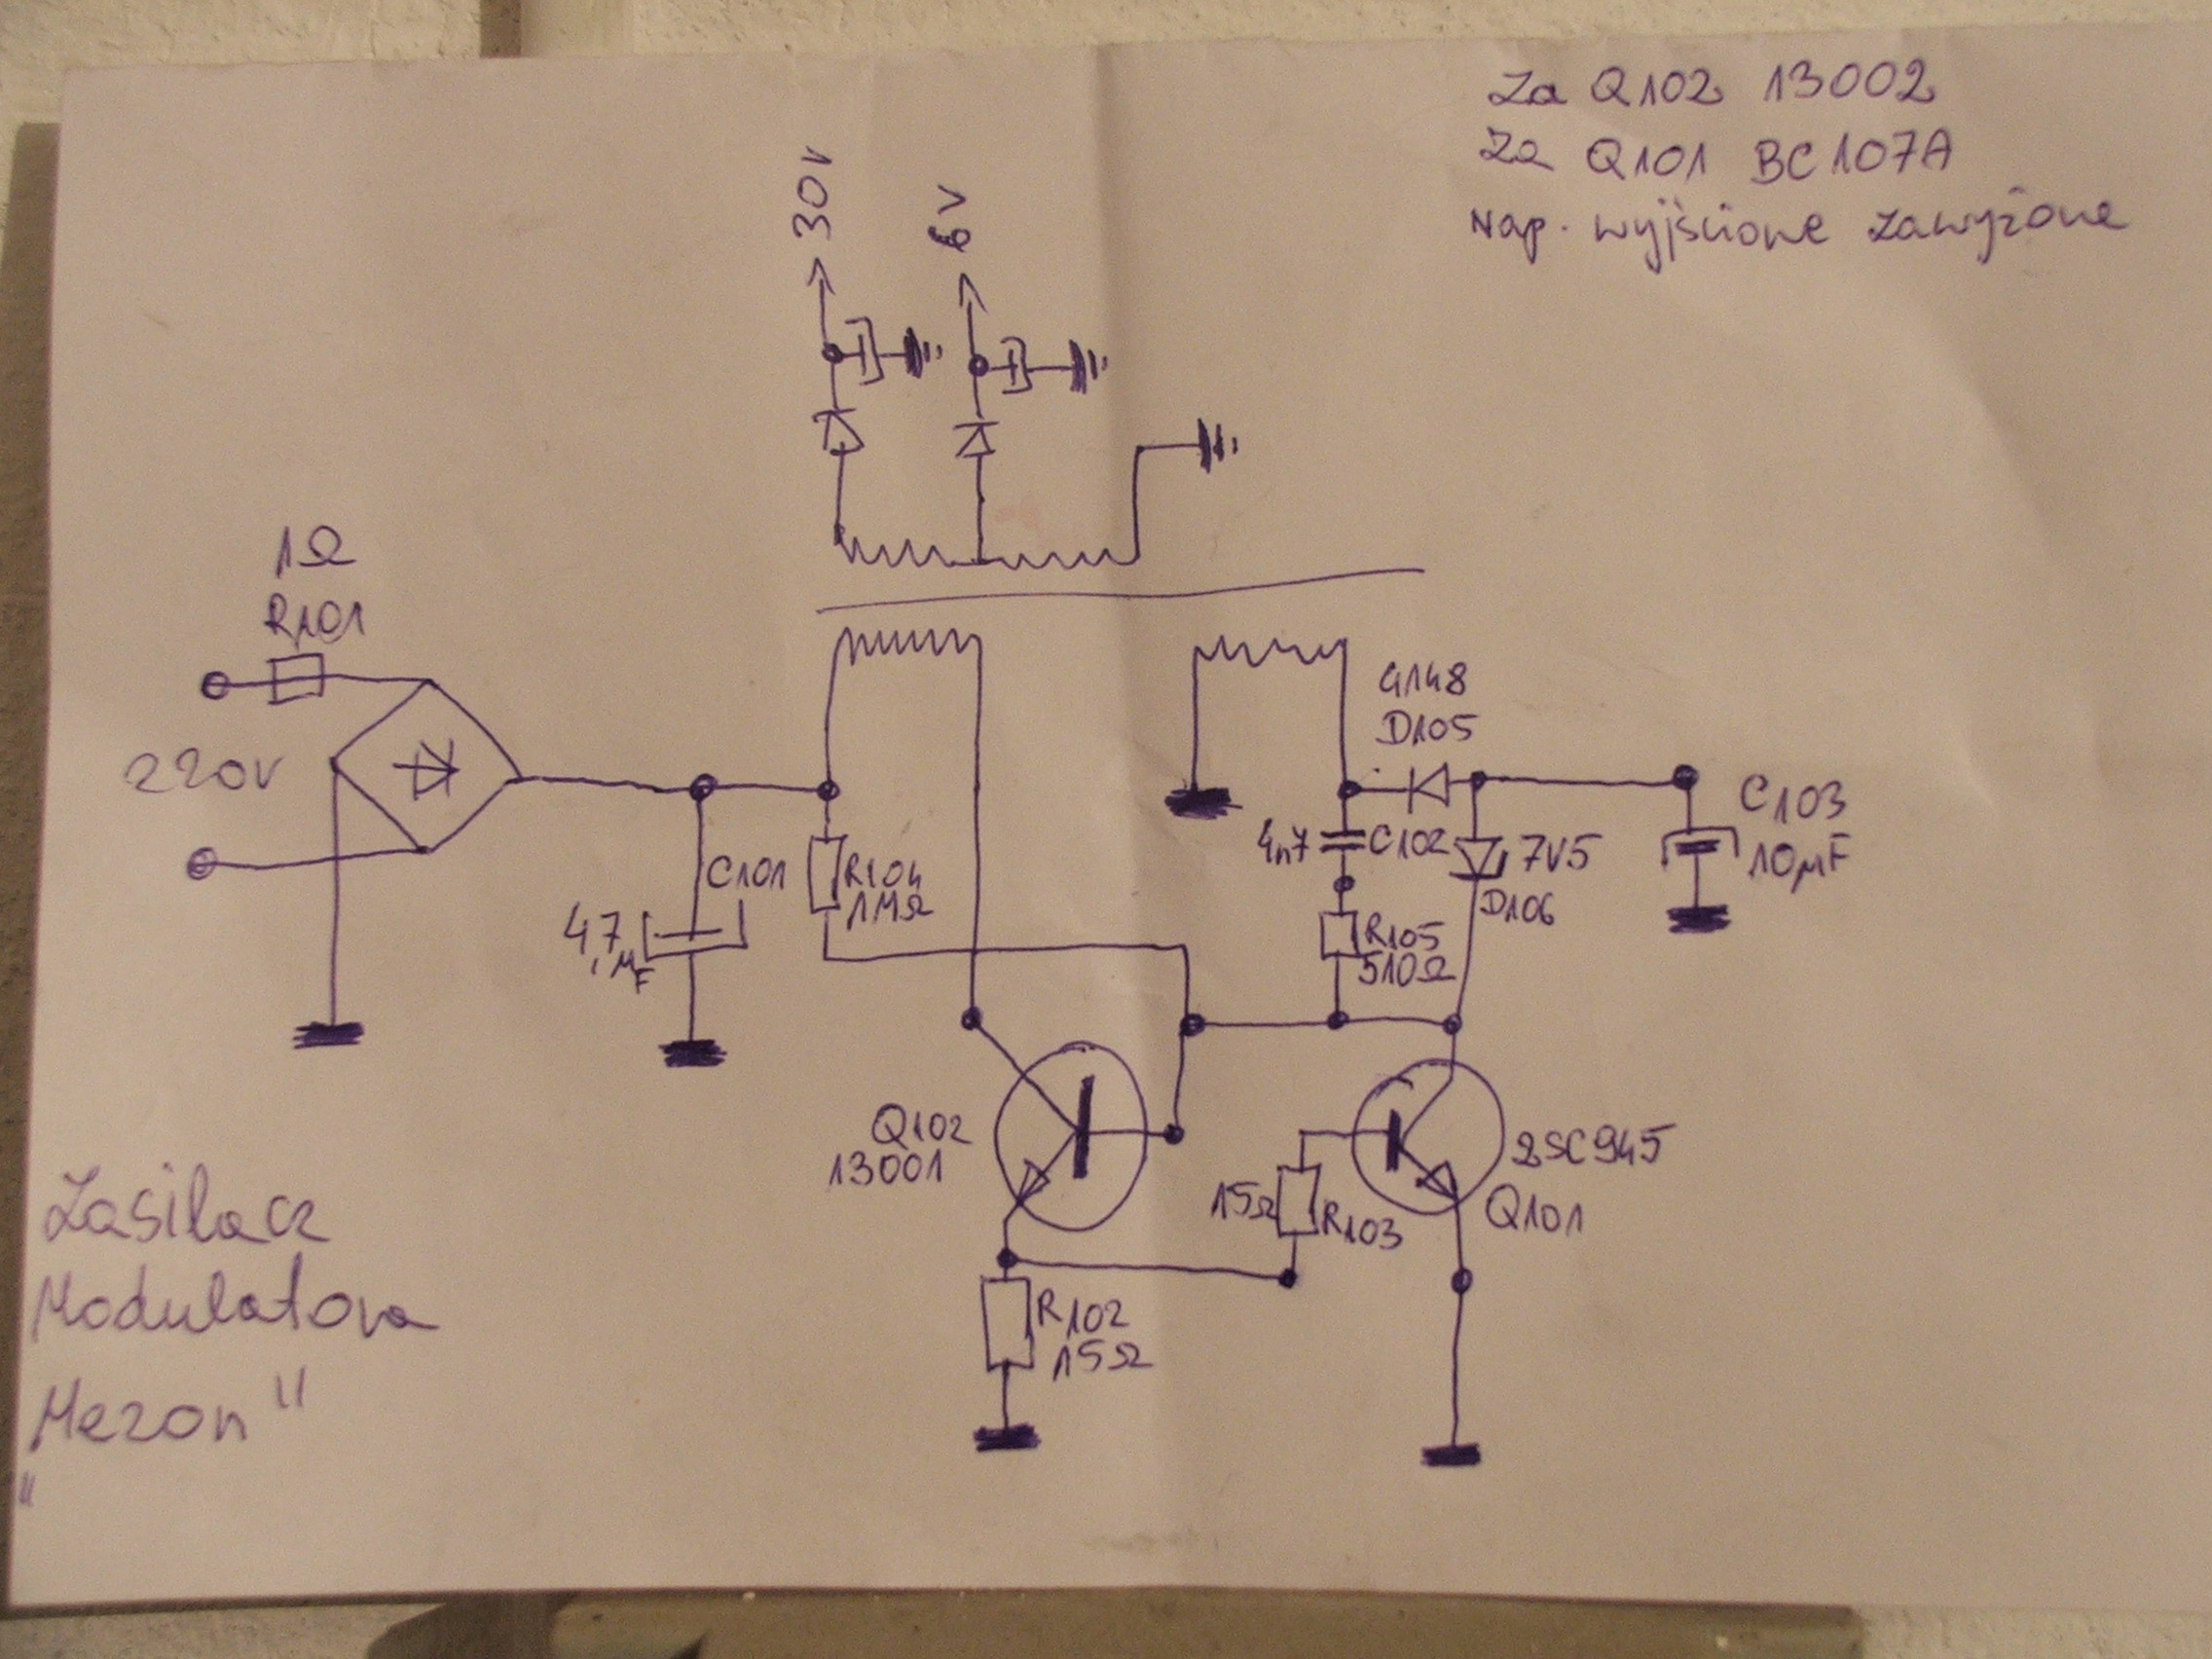 Za Q102 13002
Za Q101 BC107A
Nap. wyjściowe zawyżone
30V
6V
1Ω
R101
220V
4148
D105
C103
10μF
4n7
C102
7V5
D106
C101
4,7
μF
R104
1MΩ
R105
510Ω
Q102
13001
2SC945
Q101
15Ω
R103
R102
15Ω
Zasilacz
Modulatora
"Mezon"